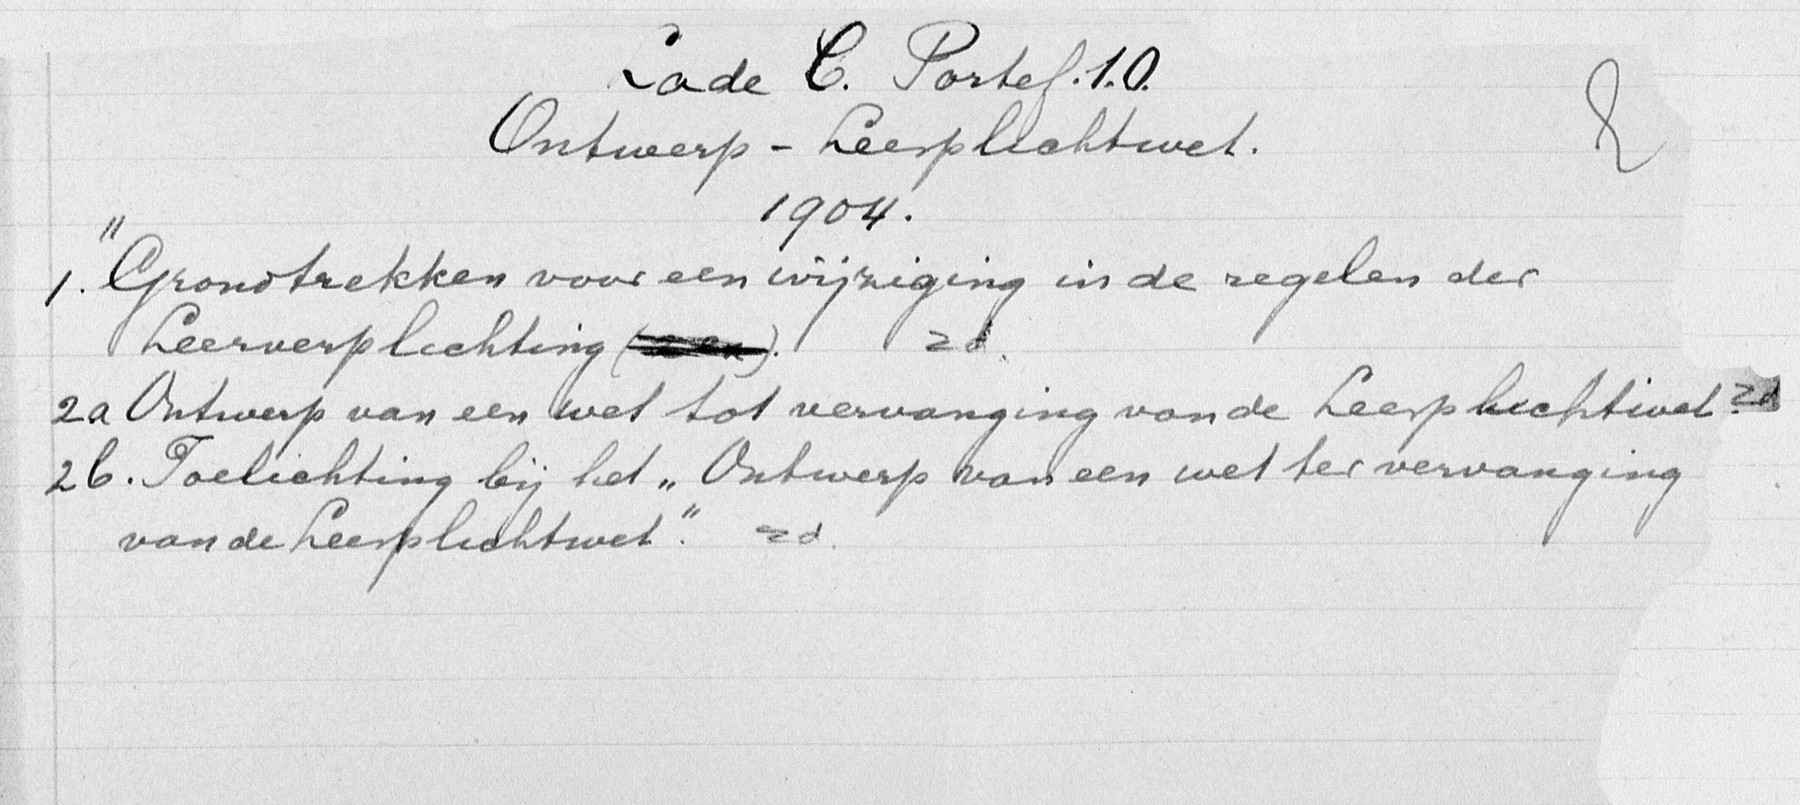 Lade C. Portef. 1.0.
Ontwerp - Leerplichtwet.
1904.
1. "Grondtrekken voor een wijziging in de regelen der
Leerverplichting ( ). zd.
2a Ontwerp van een wet tot vervanging van de Leerplichtwet. zd
2b. Toelichting bij het „Ontwerp van een wet ter vervanging
van de Leerplichtwet". zd.